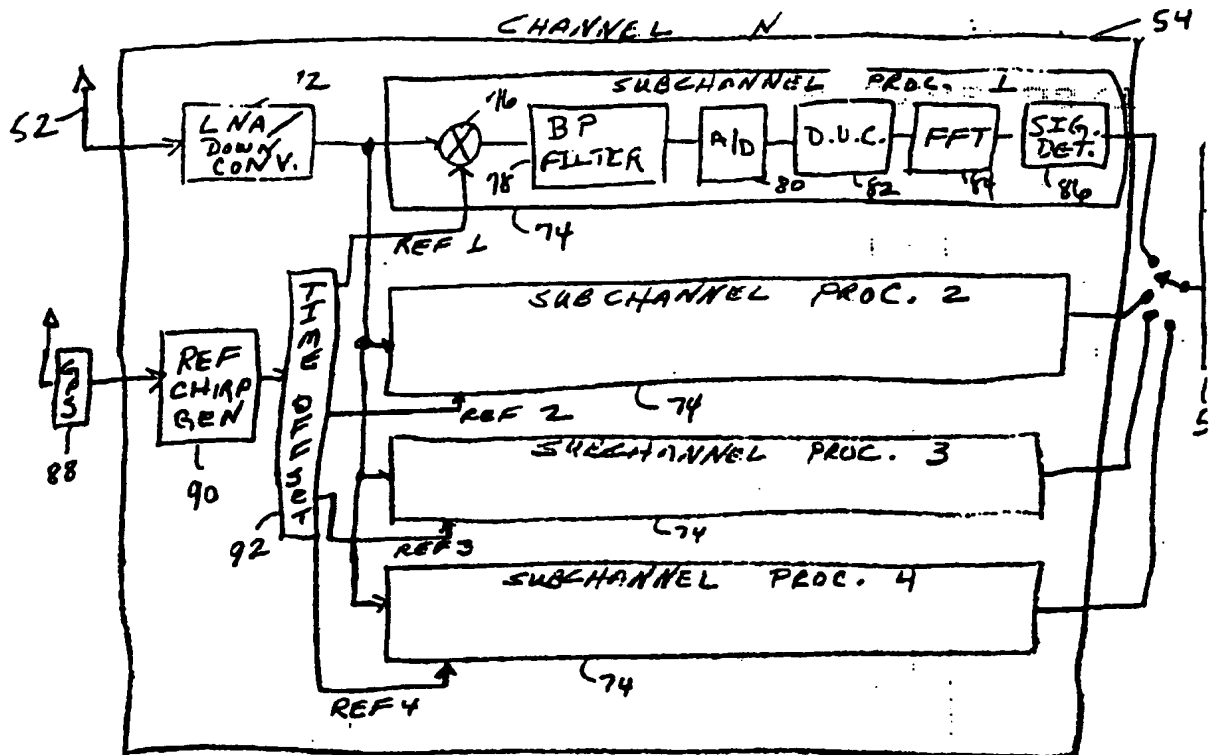 CHANNEL N
54
52
LNA/
DOWN
CONV.
SUBCHANNEL PROC. 1
76
BP
FILTER
78
A/D
80
D.U.C.
82
FFT
84
SIG.
DET.
86
74
REF 1
SUBCHANNEL PROC. 2
74
REF 2
GPS
88
REF
CHIRP
GEN
90
TIME OFFSET
92
SUBCHANNEL PROC. 3
74
REF 3
SUBCHANNEL PROC. 4
74
REF 4